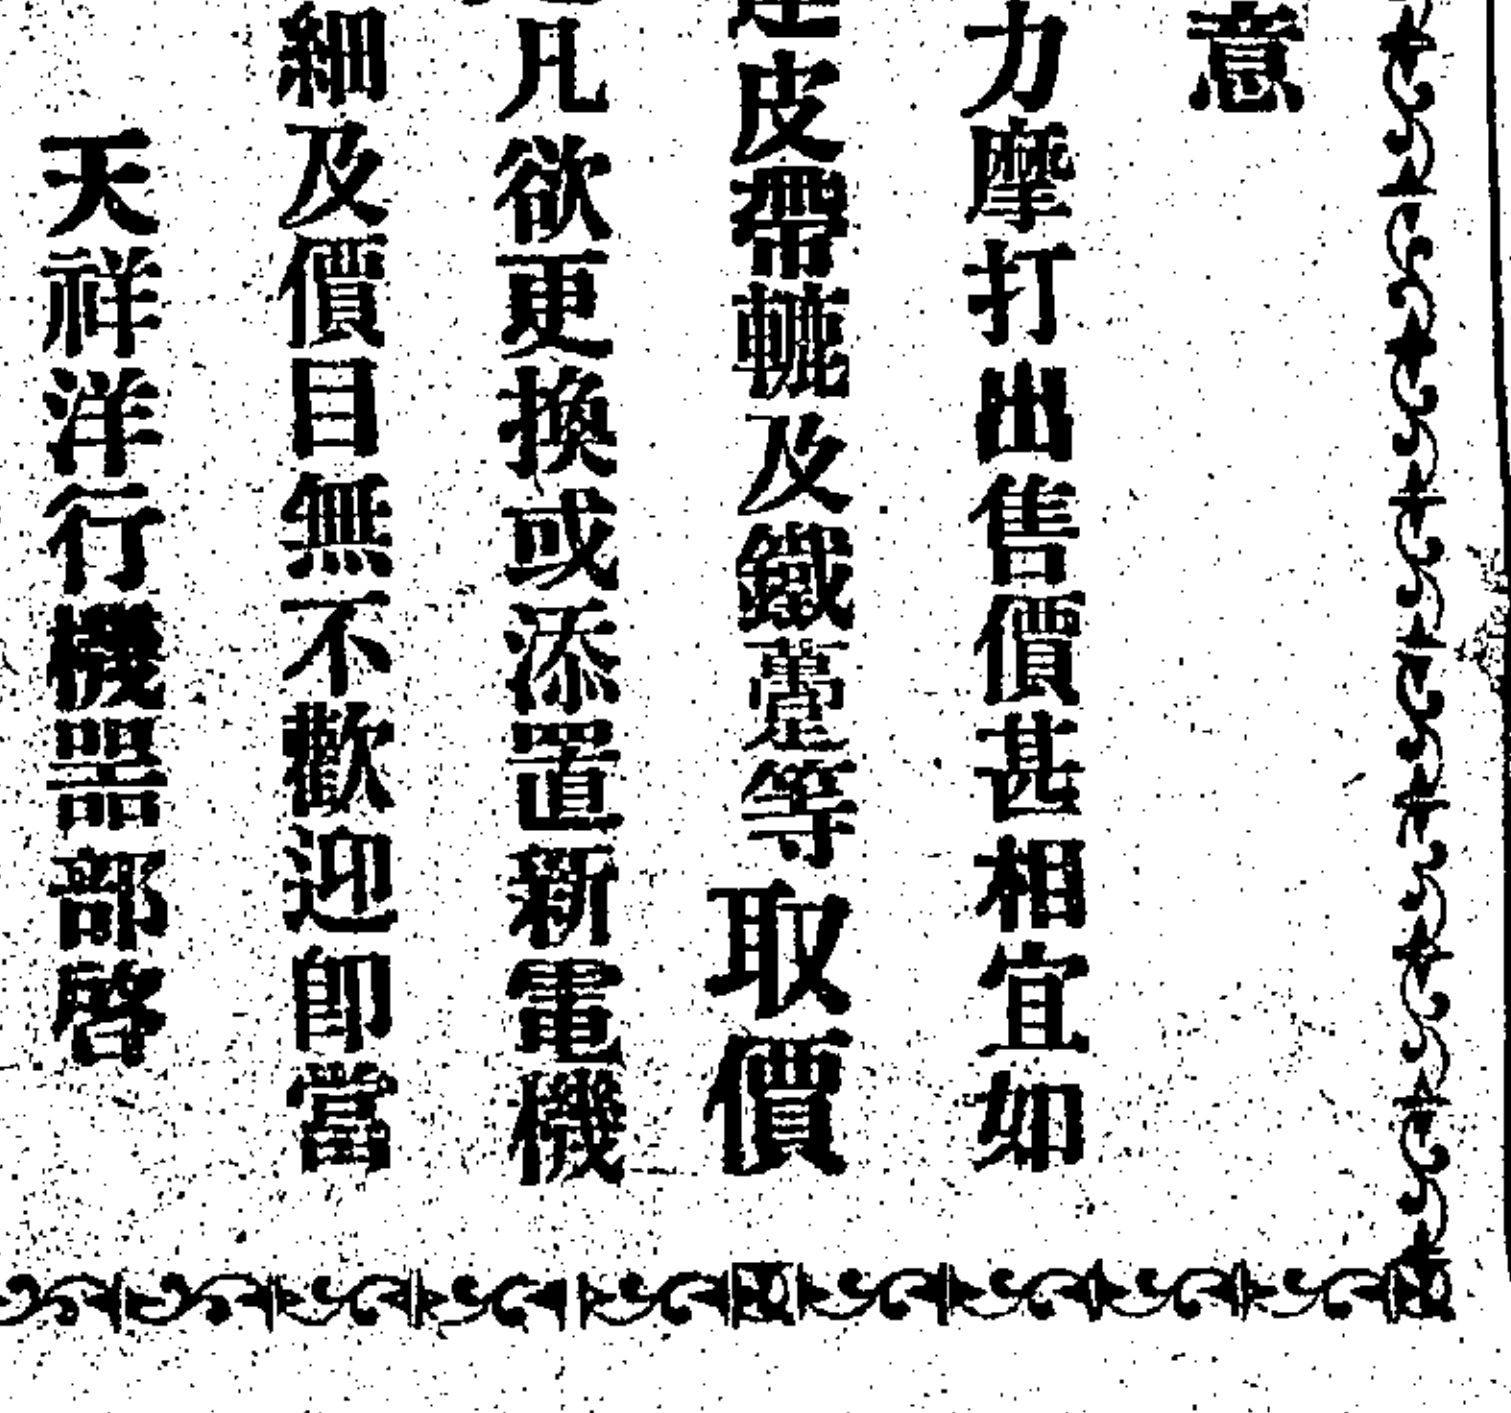 意
力摩打出售價甚相宜如
連皮帶轆及鐵躉等取價
凡欲更換或添置新電機
細及價目無不歡迎卽當
天祥洋行機器部啓